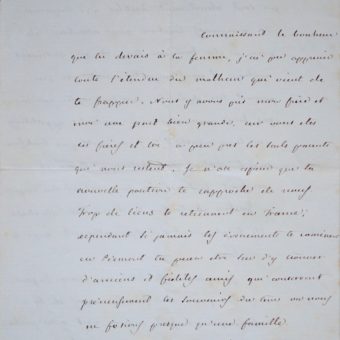 connaissant le bonheur
que tu devais à ta femme, j'ai pu apprécier
toute l'étendue du malheur qui vient de
te frapper. Nous y avons pris mon frère et
moi une part bien grande, car vous êtes
tes frères et toi à peu près les seuls parents
qui nous restent. Je n'ose espérer que ta
nouvelle position te rapproche de nous
trop de liens te retiennent en France;
cependant si jamais les événements te ramènent
en Piémont tu peux être sûr d'y trouver
d'anciens et fidèles amis qui conservent
précieusement les souvenirs du tems où nous
ne fesions presque qu'une famille